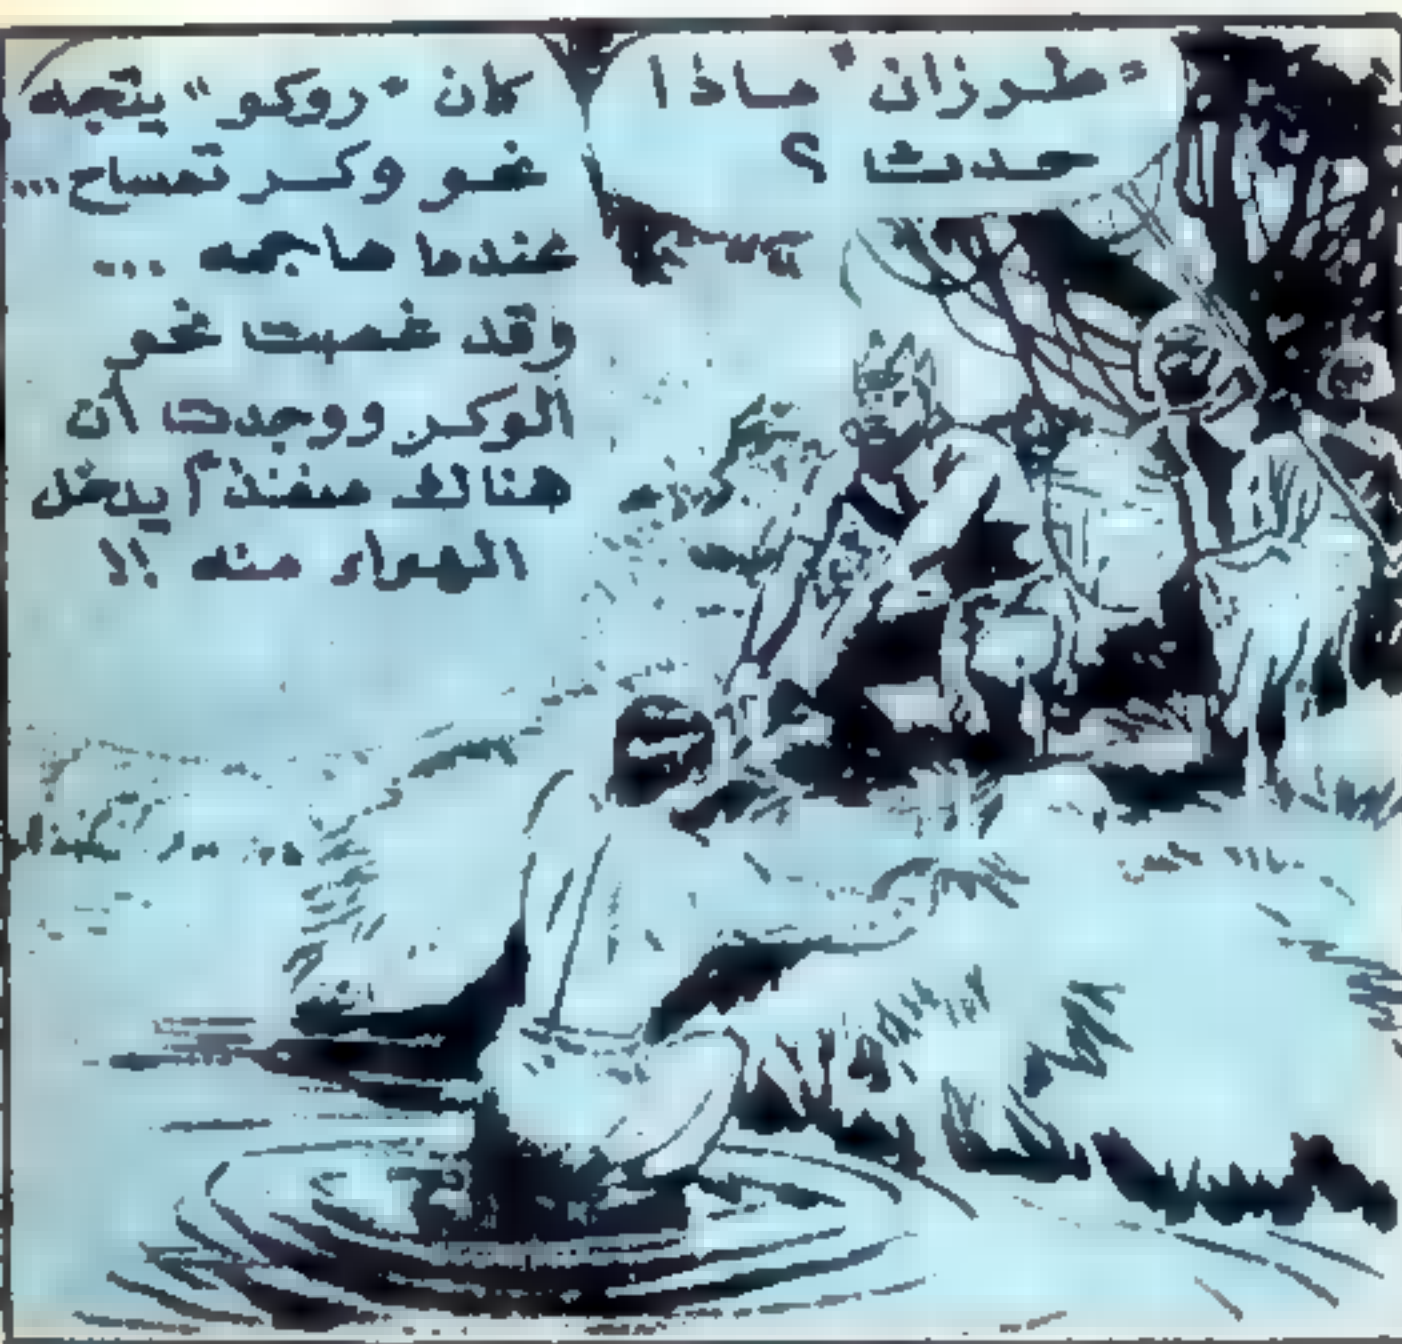 "طرزان" ماذا
حدث ؟
كان "روكو" يتجه
نحو وكر تمساح ...
عندما هاجمه ...
وقد غصت نحو
الوكر ووجدت أن
هنالك منفذاً يدخل
الهواء منه !!